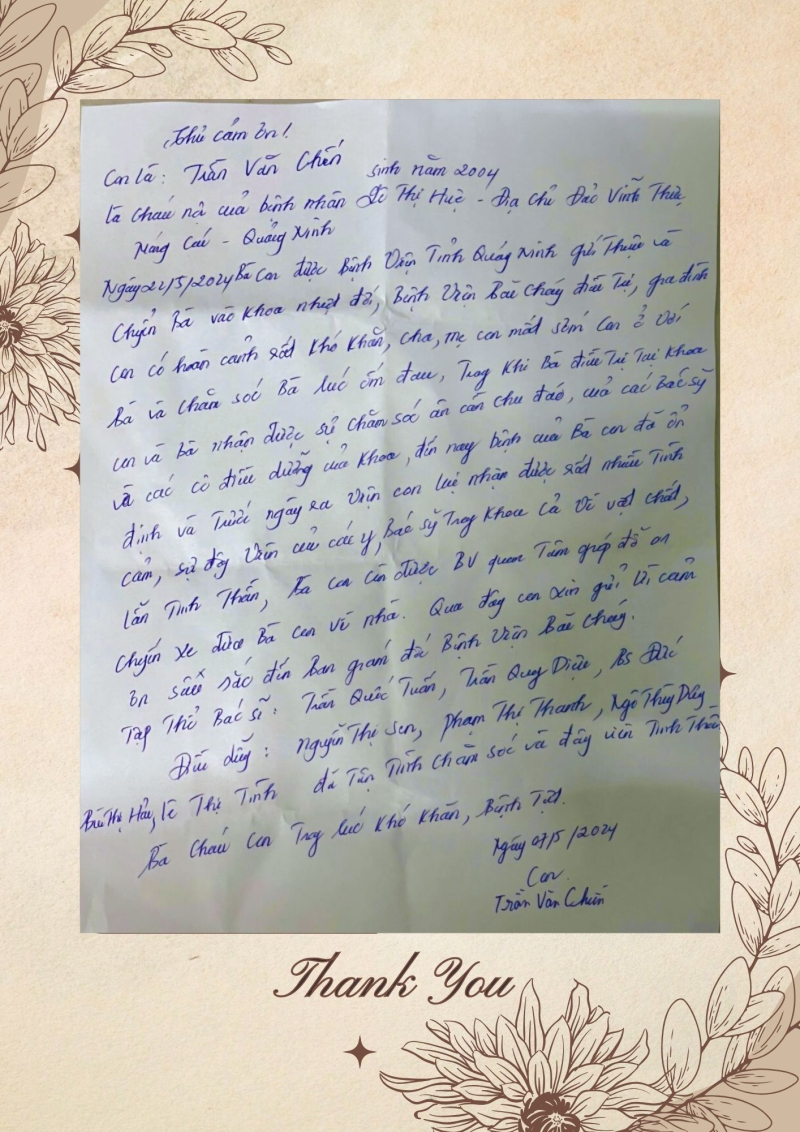 Thư cảm ơn!
Con là: Trần Văn Chiến sinh năm 2004
là cháu nội của bệnh nhân Lê Thị Huệ - Địa chỉ Đảo Vĩnh Thực
Móng Cái - Quảng Ninh
Ngày 22/5/2024 Bà con được Bệnh Viện Tỉnh Quảng Ninh phẫu thuật và
chuyển Bà vào khoa nhiệt đới, Bệnh Viện Bãi Cháy điều Trị, gia đình
con có hoàn cảnh rất khó khăn, cha, mẹ con mất sớm con ở với
Bà và chăm sóc Bà lúc ốm đau, Trong khi Bà điều Trị Tại khoa
con và Bà nhận được sự chăm sóc ân cần chu đáo, của các Bác sỹ
và các cô điều dưỡng của khoa, đến nay bệnh của Bà con đã ổn
định và Trước ngày ra viện con lại nhận được rất nhiều Tình
cảm, sự động viên của các y, Bác sỹ Trong khoa cả về vật chất,
lẫn Tinh Thần, Bà con còn được BV quan Tâm giúp đỡ
chuyến xe đưa Bà con về nhà. Qua đây con xin gửi lời cảm
ơn sâu sắc đến Ban giám đốc Bệnh Viện Bãi Cháy.
Tập Thể Bác sĩ: Trần Quốc Tuấn, Trần Quý Diệu, BS Đức
Điều dưỡng: Nguyễn Thị Sen, Phạm Thị Thanh, Ngô Thùy Dung
Bùi Thị Hậu, Lê Thị Tình đã Tận Tình chăm sóc và động viên Tinh Thần
Bà cháu con Trong lúc khó khăn, Bệnh Tật.
Ngày 07/5/2024
Con
Trần Văn Chiến
Thank You